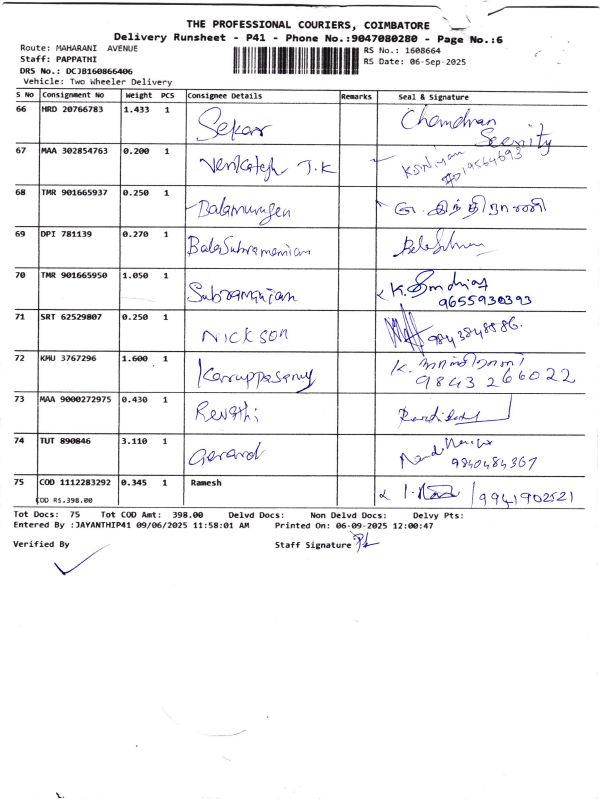 THE PROFESSIONAL COURIERS, COIMBATORE
Delivery Runsheet - P41 - Phone No.:9047080280 - Page No.:6
Route: MAHARANI AVENUE
RS No.: 1608664
Staff: PAPPATHI
RS Date: 06-Sep-2025
DRS No.: DCJB160866406
Vehicle: Two Wheeler Delivery
S No Consignment No Weight PCS Consignee Details Remarks Seal & Signature
66 HRD 20766783 1.433 1 Sekar Chandran
Security
67 MAA 302854763 0.200 1 Venkatesh J.K
68 TMR 901665937 0.250 1 Balamurugan
69 DPI 781139 0.270 1 BalaSubramanian
70 TMR 901665950 1.050 1 Subramanian
9655930393
71 SRT 62529807 0.250 1 NICKSON 9843848886.
72 KMU 3767296 1.600 1 Karuppasamy
9843266022
73 MAA 9000272975 0.430 1 Revathi
74 TUT 890846 3.110 1 Gerard
9840484367
75 COD 1112283292 0.345 1 Ramesh 9941902521
COD RS.398.00
Tot Docs: 75 Tot COD Amt: 398.00 Delvd Docs: Non Delvd Docs: Delvy Pts:
Entered By :JAYANTHIP41 09/06/2025 11:58:01 AM Printed On: 06-09-2025 12:00:47
Verified By Staff Signature